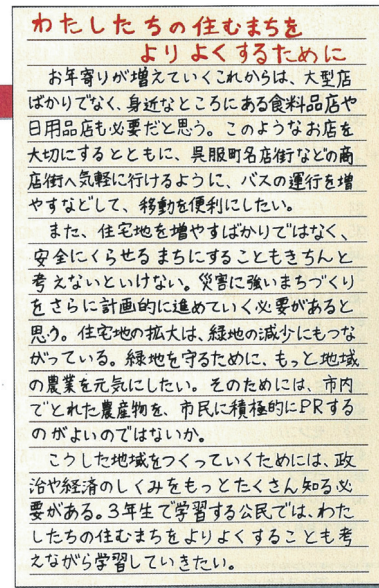 わたしたちの住むまちを
よりよくするために
お年寄りが増えていくこれからは、大型店
ばかりでなく、身近なところにある食料品店や
日用品店も必要だと思う。このようなお店を
大切にするとともに、呉服町名店街などの商
店街へ気軽に行けるように、バスの運行を増
やすなどして、移動を便利にしたい。
また、住宅地を増やすばかりではなく、
安全にくらせるまちにすることもきちんと
考えないといけない。災害に強いまちづくり
をさらに計画的に進めていく必要があると
思う。住宅地の拡大は、緑地の減少にもつな
がっている。緑地を守るために、もっと地域
の農業を元気にしたい。そのためには、市内
でとれた農産物を、市民に積極的にPRする
のがよいのではないか。
こうした地域をつくっていくためには、政
治や経済のしくみをもっとたくさん知る必
要がある。3年生で学習する公民では、わた
したちの住むまちをよりよくすることも考
えながら学習していきたい。